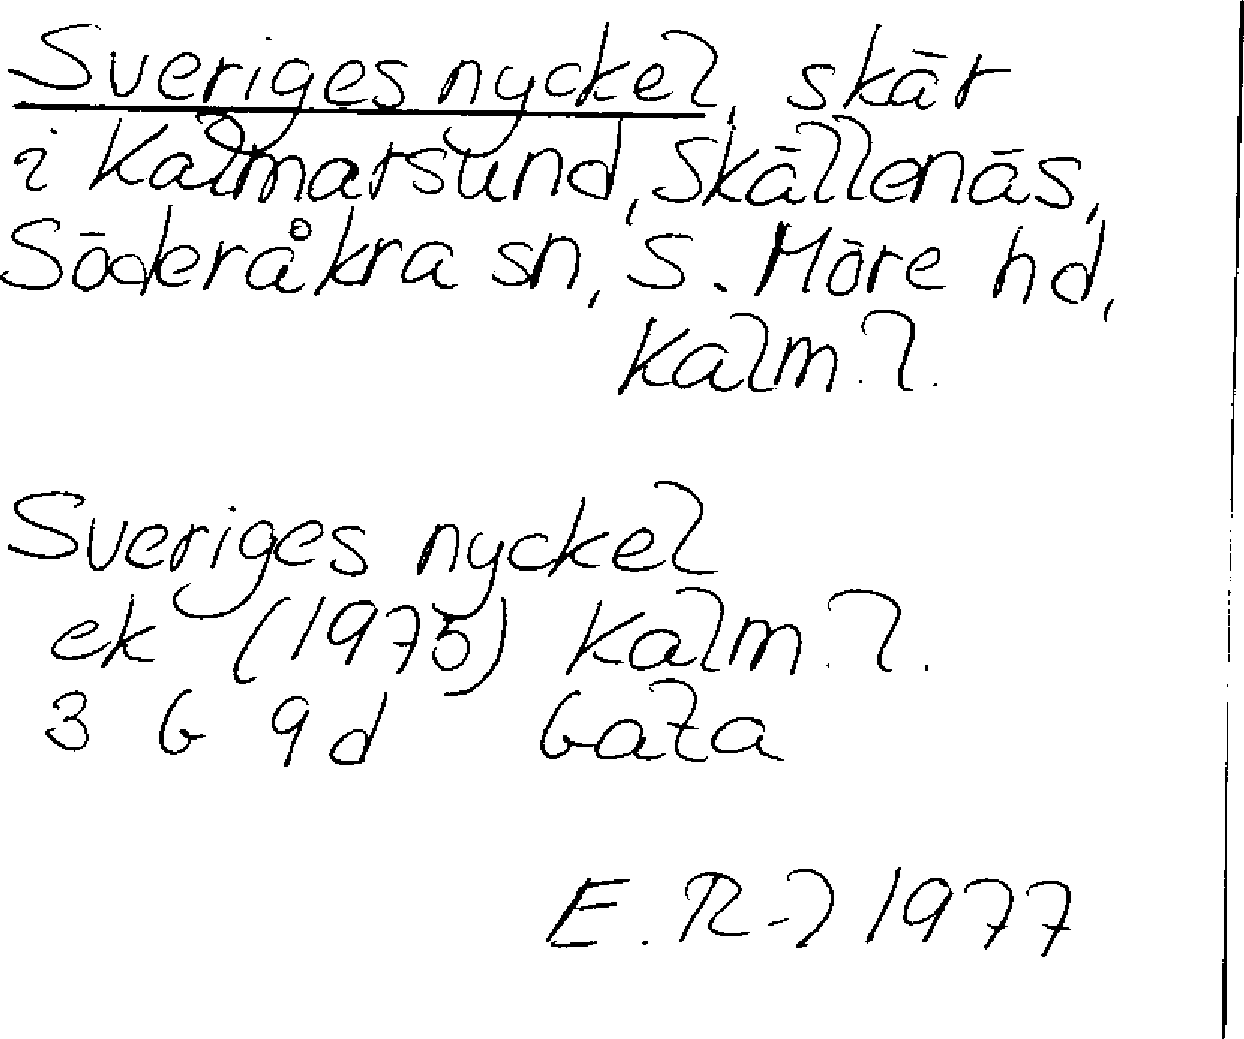 Sveriges nyckel, skär
i Kalmarsund, Skällenäs,
Söderåkra sn, S. Möre hd,
Kalm. l.
Sveriges nyckel
ek (1975) Kalm. l.
3 G 9d Gata
E. R-l 1977